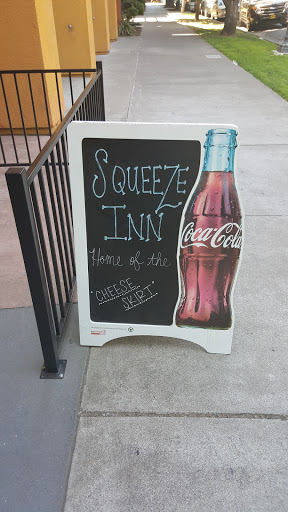 SQUEEZE
INN
Home of the
"CHEESE
SKIRT"
Coca-Cola